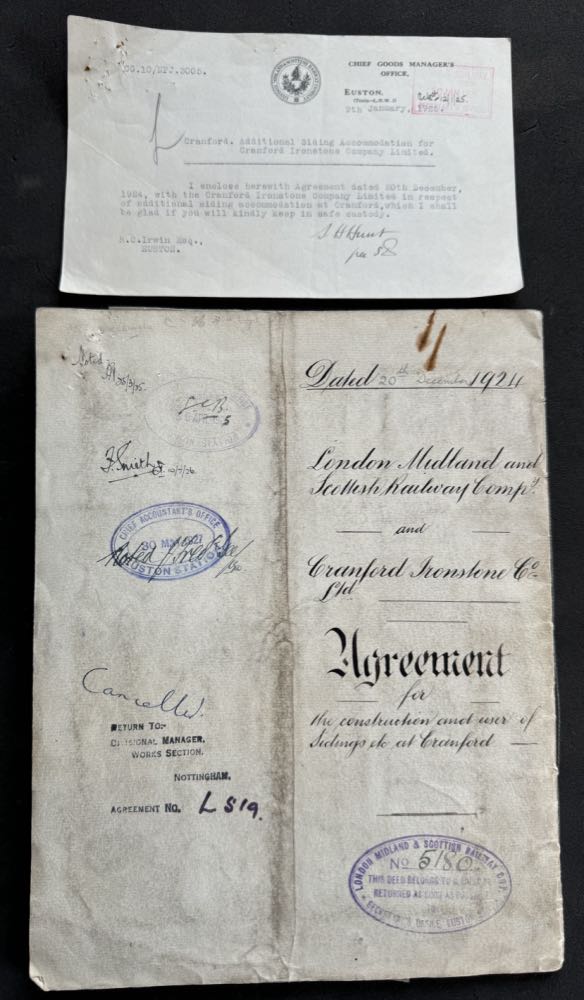 CG.10/EFJ.3005.
CHIEF GOODS MANAGER'S
OFFICE,
EUSTON.
9th January,
Cranford. Additional Siding Accommodation for
Cranford Ironstone Company Limited.
I enclose herewith Agreement dated 20th December,
1924, with the Cranford Ironstone Company Limited in respect
of additional siding accommodation at Cranford,which I shall
be glad if you will kindly keep in safe custody.
S H Hunt
R.C.Irwin Esq.,
EUSTON.
Noted
25/3/25
F. Smith
10/7/26
CHIEF ACCOUNTANT'S OFFICE
30 MAY 1927
EUSTON STATION
Noted
Cancelled.
RETURN TO:-
DIVISIONAL MANAGER,
WORKS SECTION.
NOTTINGHAM.
AGREEMENT NO. L 519.
Dated 20th December 1924
London Midland and
Scottish Railway Compy.
and
Cranford Ironstone Co.
Ltd
Agreement
for
the construction and user of
Sidings etc at Cranford
LONDON MIDLAND & SCOTTISH RAILWAY
No 5180
THIS DEED BELONGS TO
RETURNED AS SOON AS